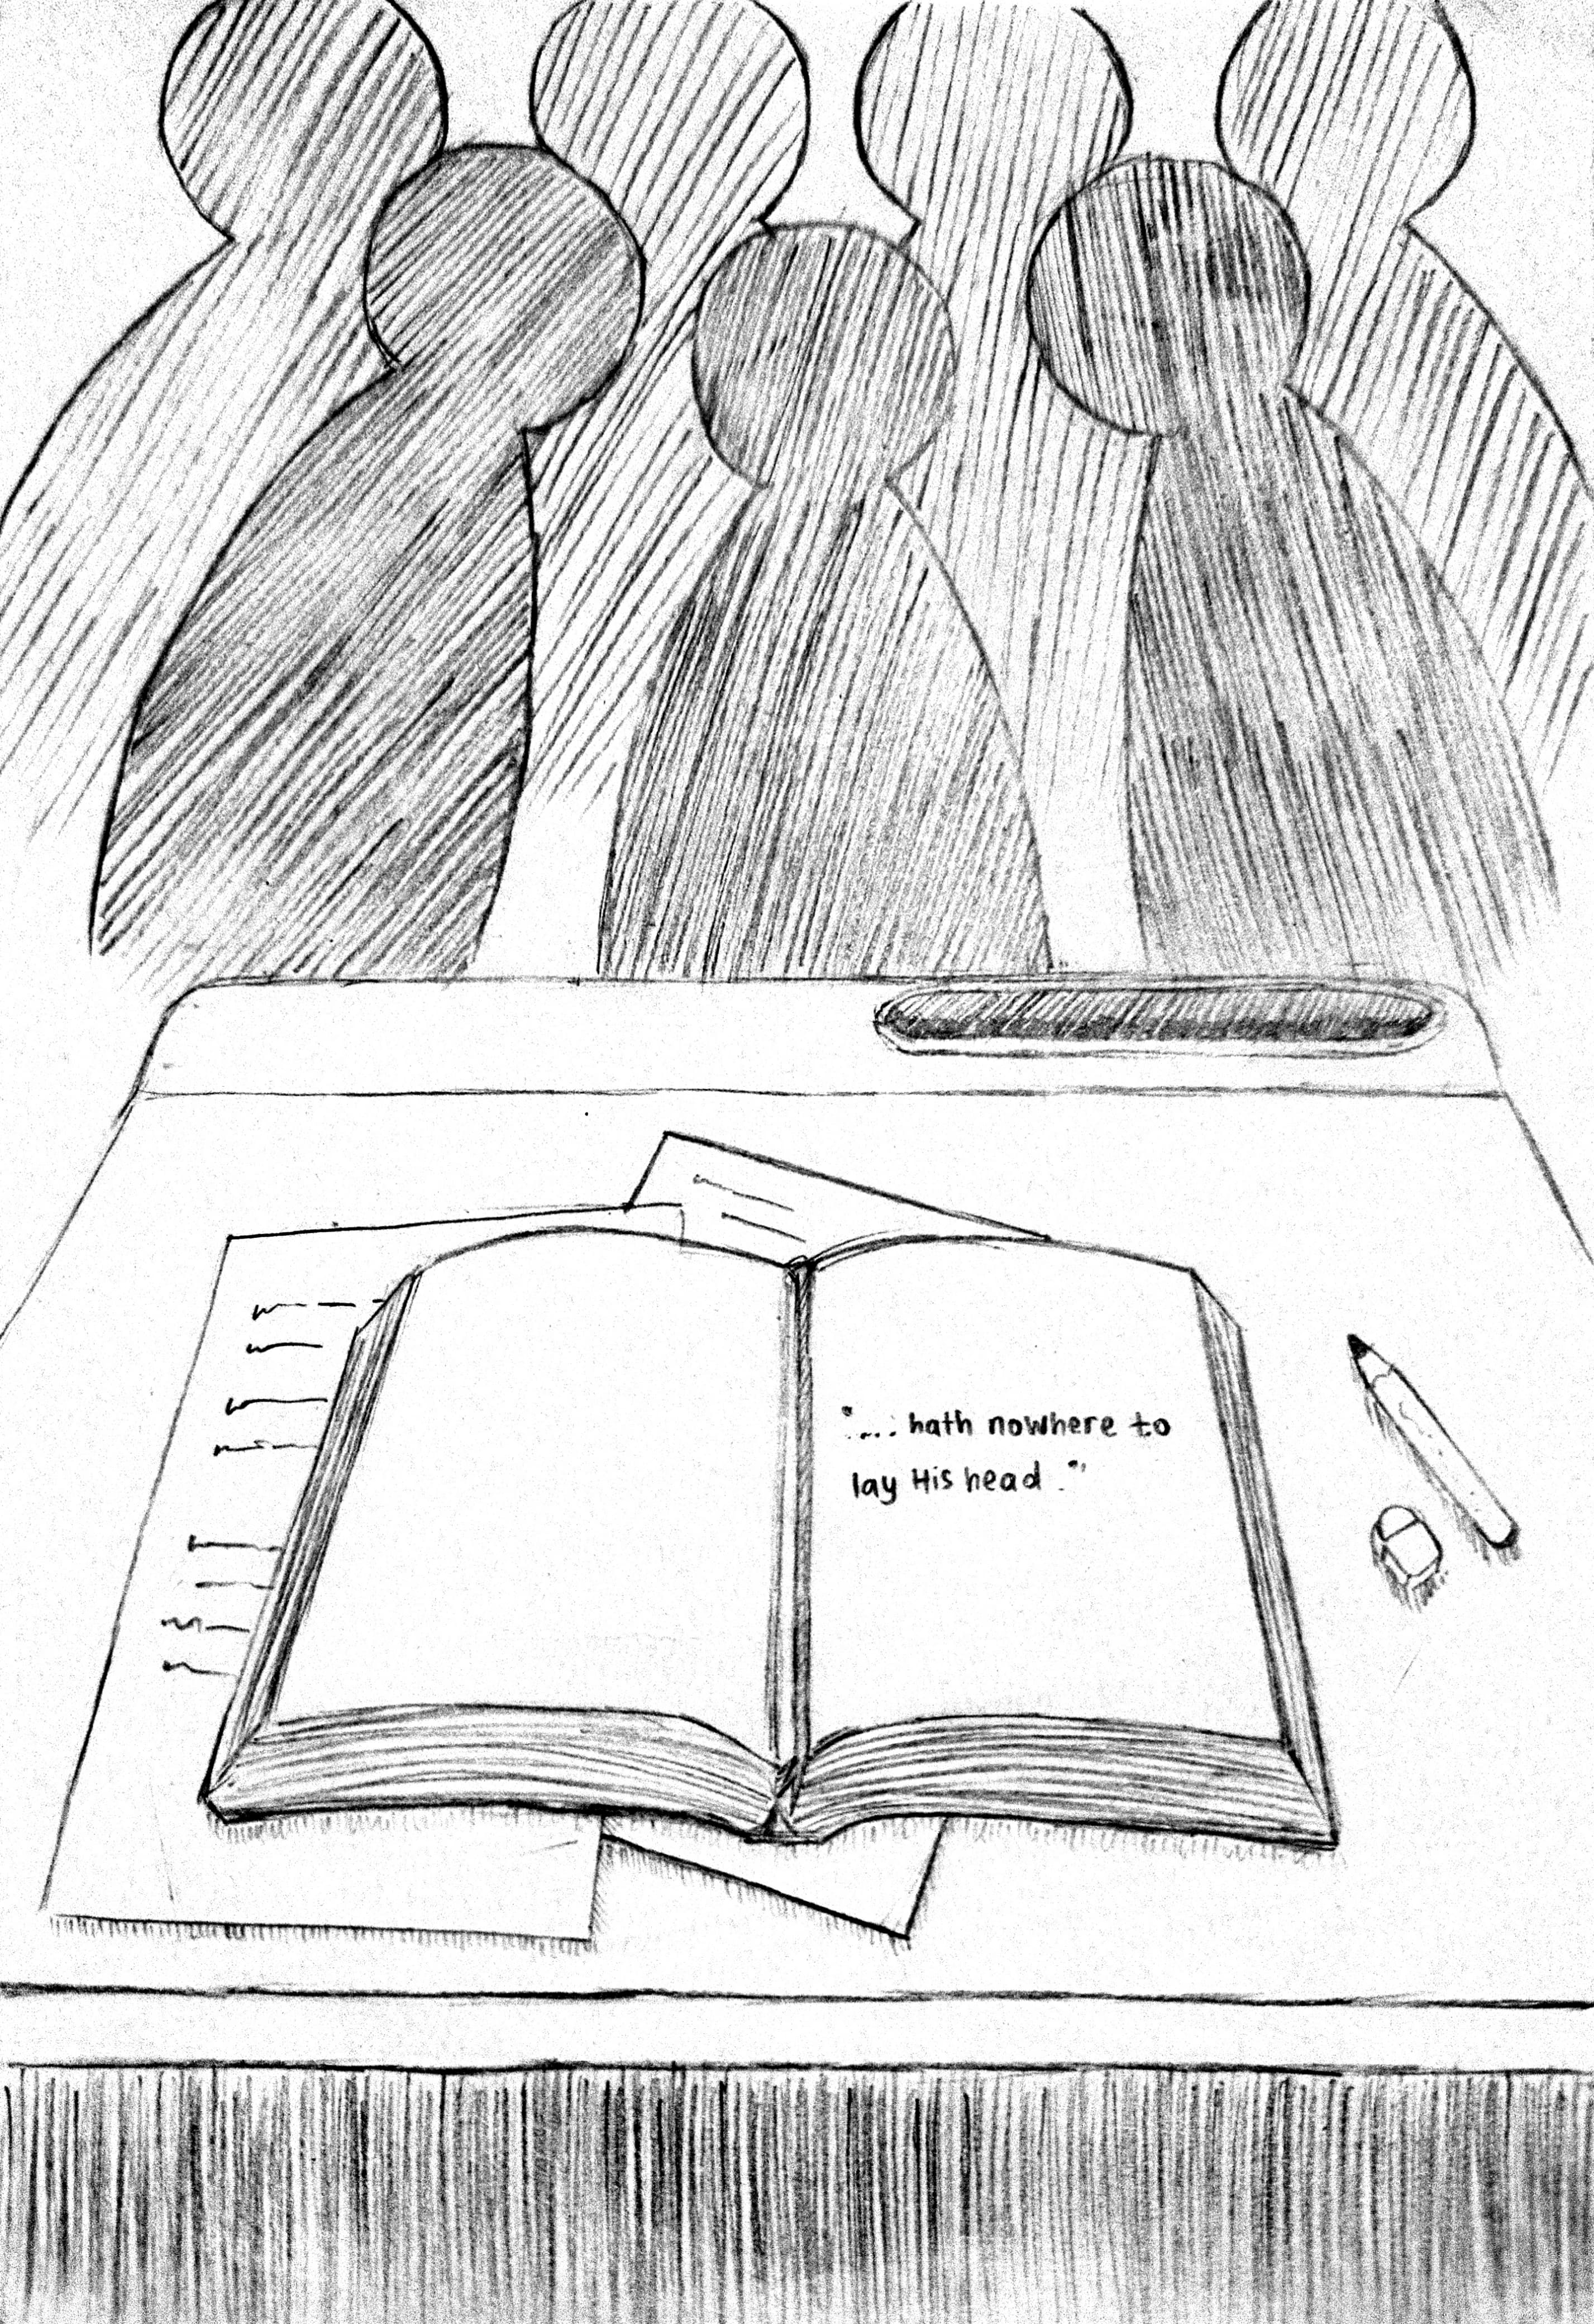 "... hath nowhere to
lay His head."